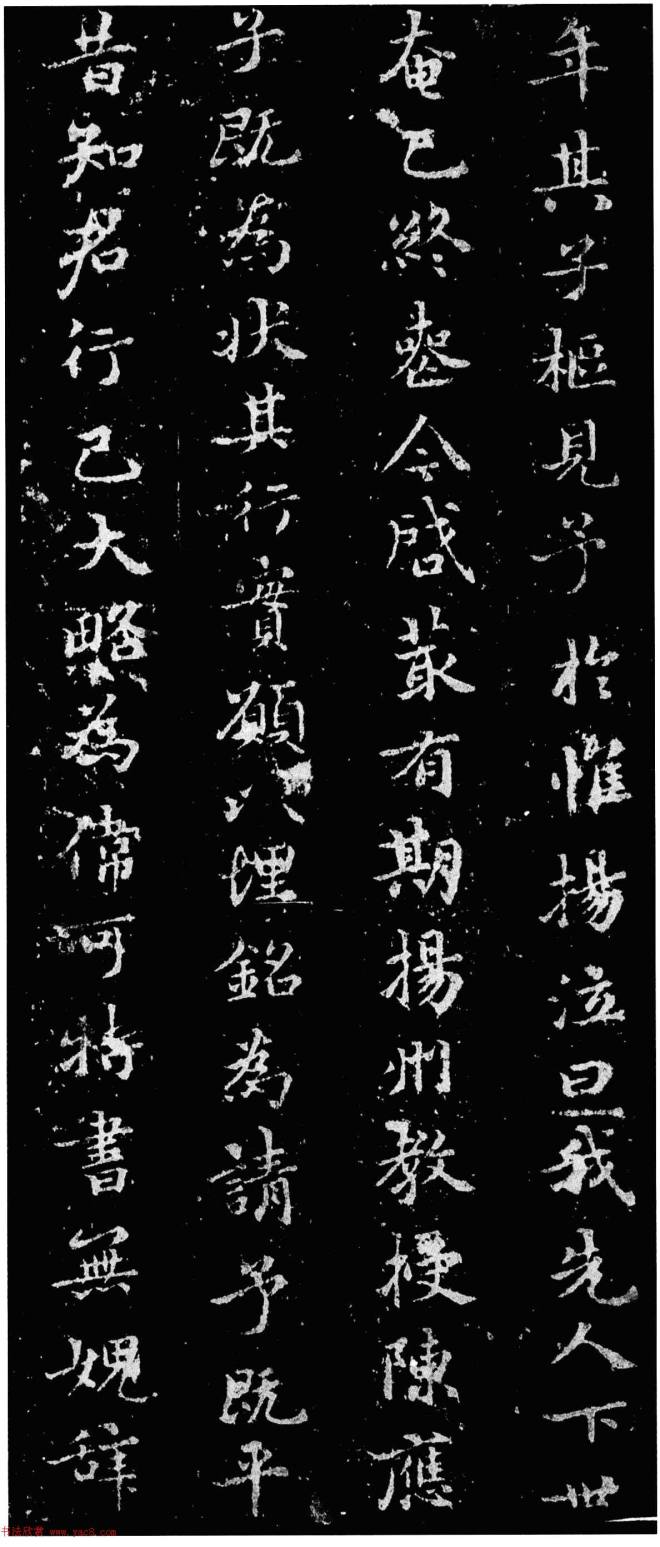 年其子樞見予於惟揚泣曰我先人下世
奄已終喪今啓菆有期揚州教授陳應
子既為狀其行實願以埋銘為請予既平
昔知君行己大略為備可特書無媿辭
书法欣赏 www.yac8.com